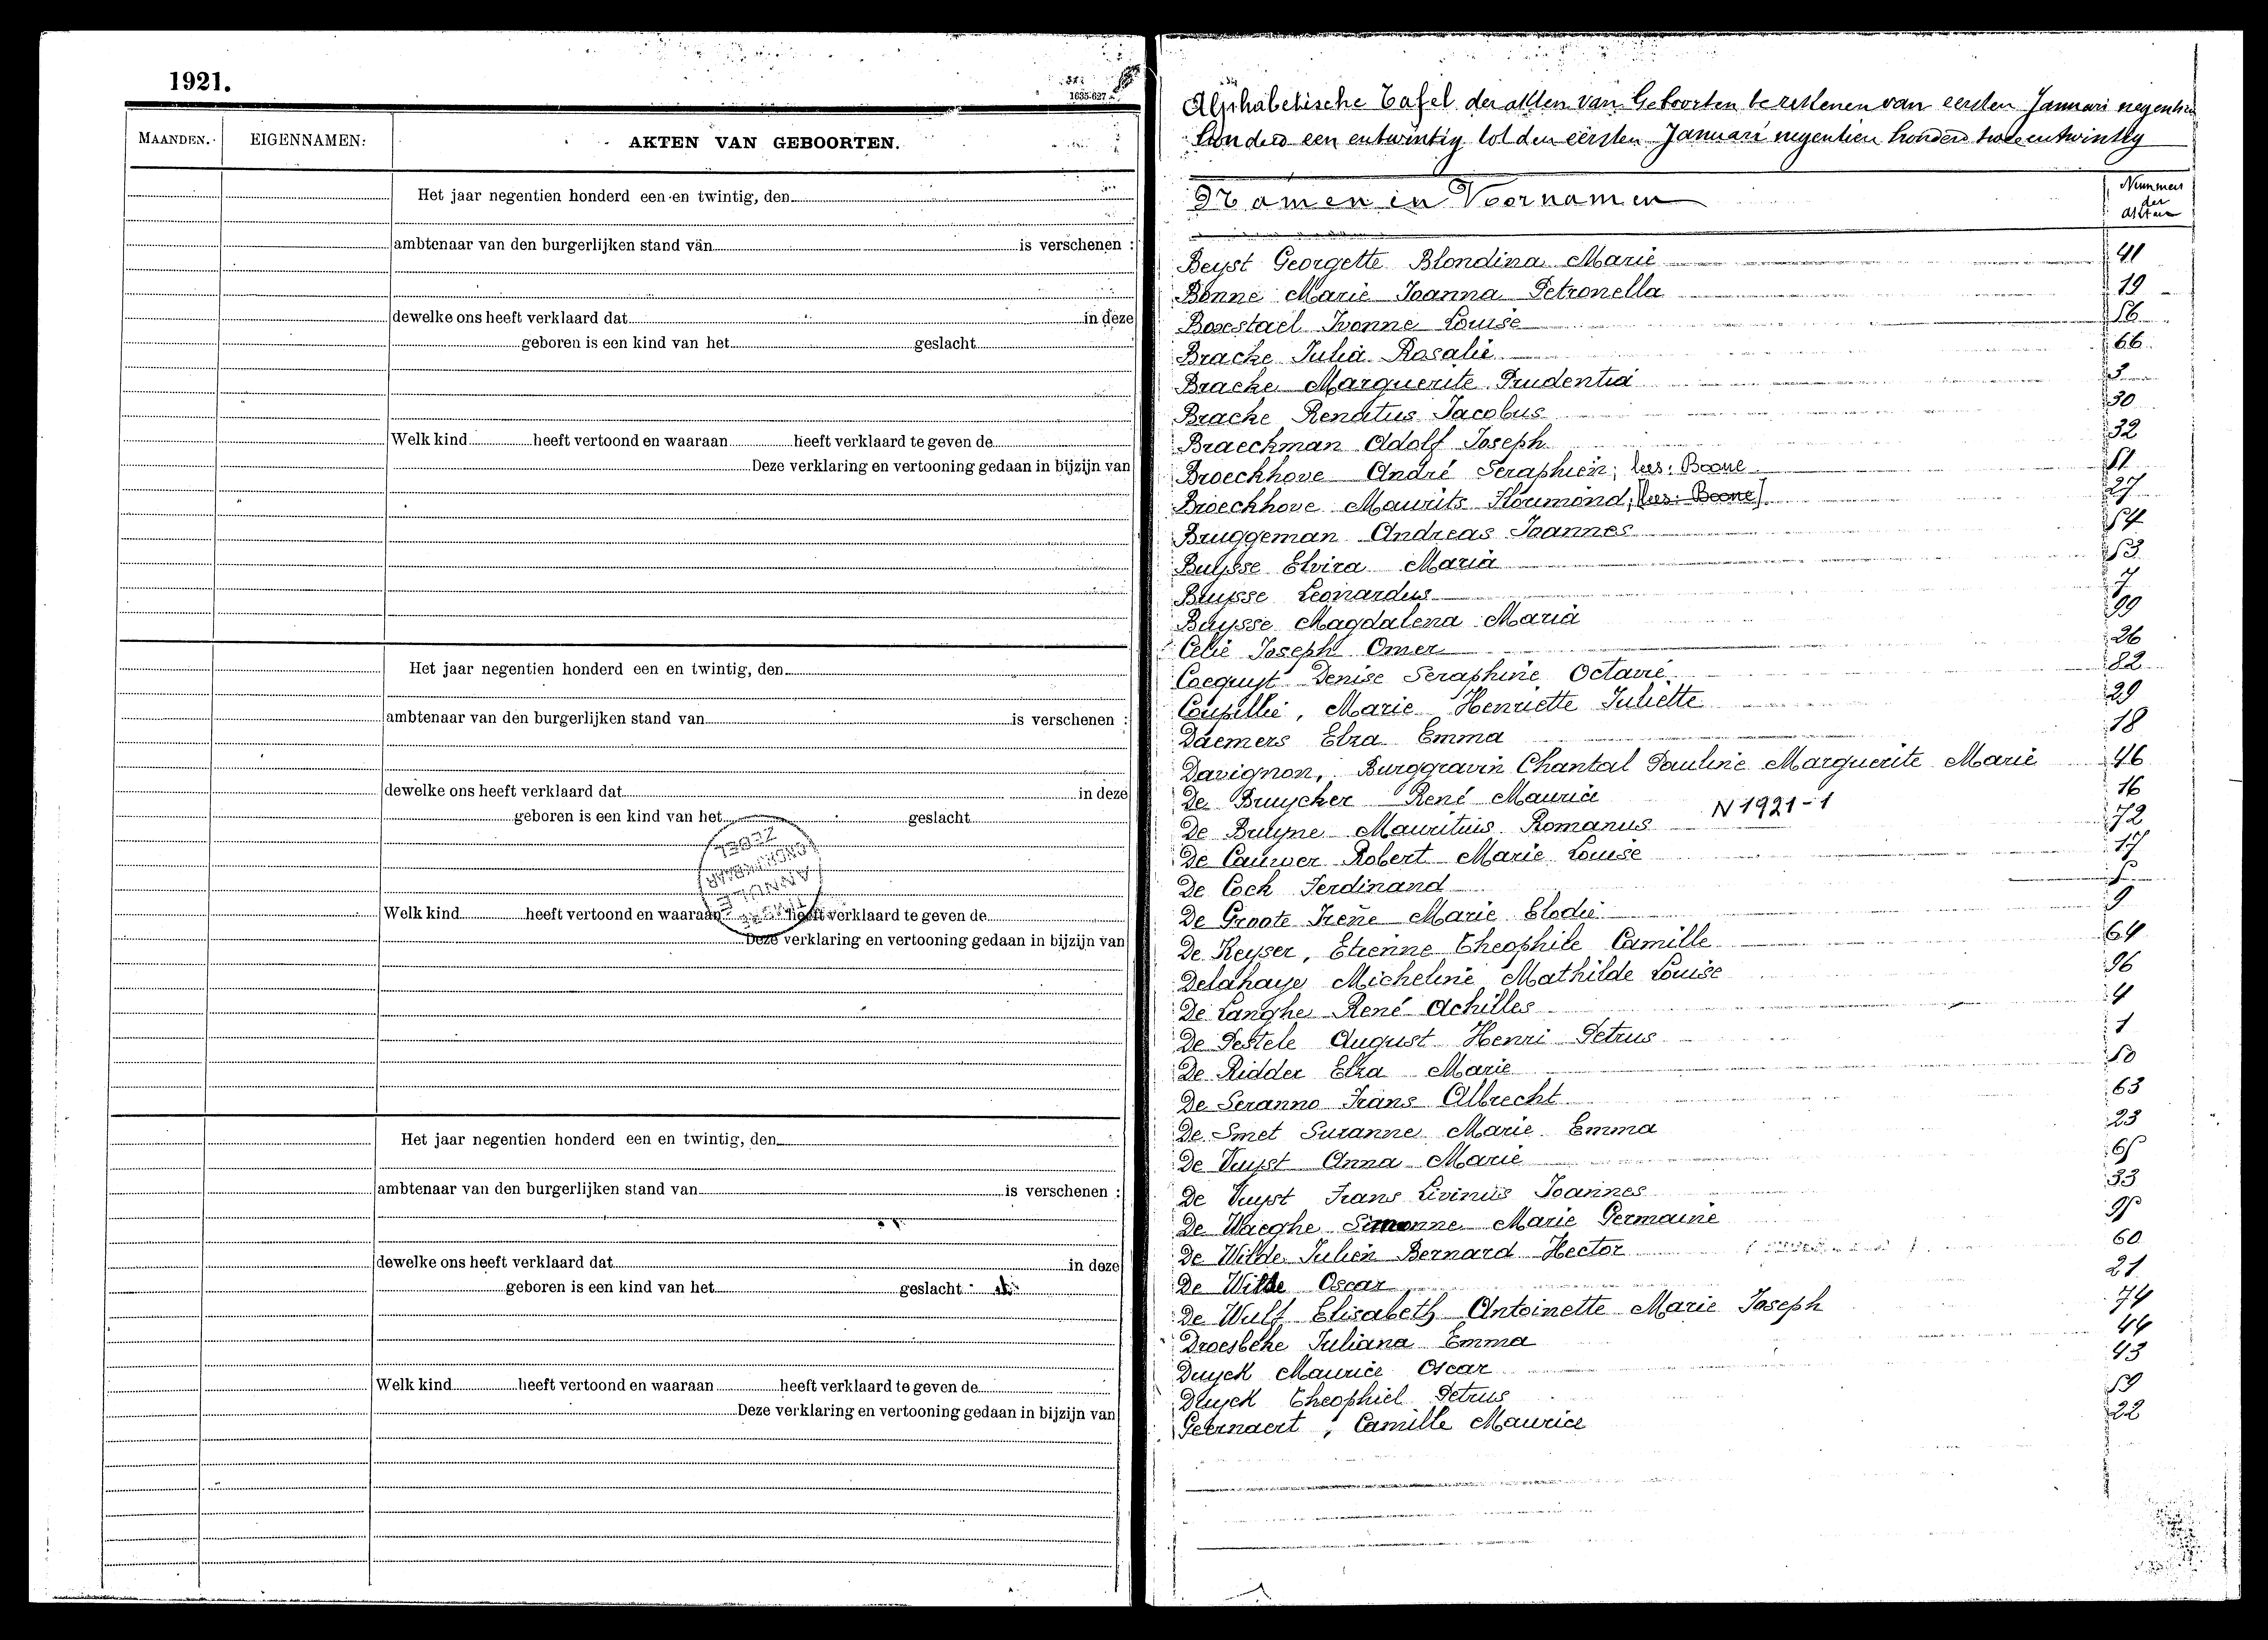 1921.
1635-627
MAANDEN.
EIGENNAMEN:
AKTEN VAN GEBOORTEN.
Het jaar negentien honderd een en twintig, den
ambtenaar van den burgerlijken stand van is verschenen :
dewelke ons heeft verklaard dat in deze
geboren is een kind van het geslacht
Welk kind heeft vertoond en waaraan heeft verklaard te geven de
Deze verklaring en vertooning gedaan in bijzijn van
Het jaar negentien honderd een en twintig, den
ambtenaar van den burgerlijken stand van is verschenen :
dewelke ons heeft verklaard dat in deze
geboren is een kind van het geslacht
Welk kind heeft vertoond en waaraan heeft verklaard te geven de
Deze verklaring en vertooning gedaan in bijzijn van
Het jaar negentien honderd een en twintig, den
ambtenaar van den burgerlijken stand van is verschenen :
dewelke ons heeft verklaard dat in deze
geboren is een kind van het geslacht
Welk kind heeft vertoond en waaraan heeft verklaard te geven de
Deze verklaring en vertooning gedaan in bijzijn van
Alphabetische Tafel der akten van Geboorten van eersten Januari negentien
honderd een entwintig tot den eersten Januari negentien honderd twee entwintig
Namen in Voornamen
Nummers der akten
Beyst Georgette Blondina Marie 41
Bonne Marie Joanna Petronella 19
Boxestael Ivonne Louise 56
Bracke Julia Rosalie 66
Bracke Marguerite Prudentia 3
Bracke Renatus Jacobus 30
Braeckman Adolf Joseph 32
Broeckhove André Seraphien; lees: Boone 51
Broeckhove Maurits Floumond; [lees: Boone] 27
Bruggeman Andreas Joannes 54
Buysse Elvira Maria 53
Buysse Leonardus 7
Buysse Magdalena Maria 39
Celie Joseph Omer 26
Coequyt Denise Seraphine Octavie 82
Coupillie, Marie Henriette Juliette 29
Daemers Elza Emma 18
Davignon, Burggravin Chantal Pauline Marguerite Marie 46
De Bruycker René Maurice 16
De Bruyne Mauritius Romanus N 1921-1 72
De Cauwer Robert Marie Louise 17
De Cock Ferdinand 5
De Groote Irène Marie Elodie 9
De Keyser, Etienne Theophile Camille 64
Delahaye Micheline Mathilde Louise 36
De Langhe René Achilles 4
De Pestele August Henri Petrus 1
De Ridder Elza Marie 50
De Seranno Frans Albrecht 63
De Smet Suzanne Marie Emma 23
De Vuyst Anna Marie 65
De Vuyst Frans Livinus Joannes 33
De Waeghe Simonne Marie Germaine 35
De Wilde Julien Bernard Hector 60
De Wilde Oscar 21
De Wulf Elisabeth Antoinette Marie Joseph 74
Droesbeke Juliana Emma 44
Duyck Maurice Oscar 43
Duyck Theophiel Petrus 59
Geernaert, Camille Maurice 22